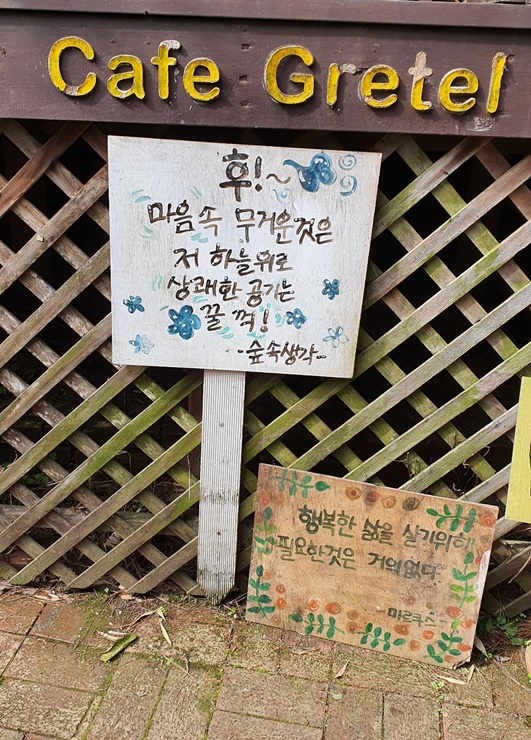 Cafe Gretel
후!~
마음 속 무거운것은
저 하늘위로
상쾌한 공기는
꿀 꺽!
-숲속생각-
행복한 삶을 살기위해
필요한것은 거의없다.
-마르쿠스-